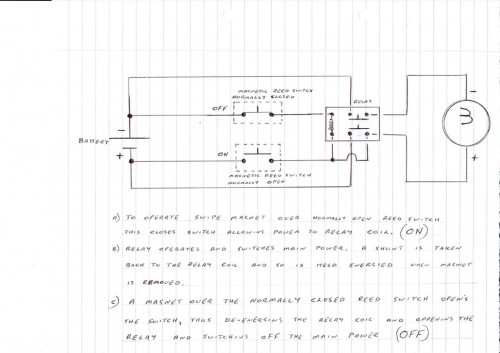 MAGNETIC REED SWITCH
NORMALLY CLOSED
OFF
RELAY
-
-
BATTERY
+
3
+
ON
MAGNETIC REED SWITCH
NORMALLY OPEN
A) TO OPERATE SWIPE MAGNET OVER NORMALLY OPEN REED SWITCH
THIS CLOSES SWITCH ALLOWING POWER TO RELAY COIL. (ON)
B) RELAY OPERATES AND SWITCHES MAIN POWER. A SHUNT IS TAKEN
BACK TO THE RELAY COIL AND SO IS HELD ENERGIED WHEN MAGNET
IS REMOVED.
C) A MAGNET OVER THE NORMALLY CLOSED REED SWITCH OPEN'S
THE SWITCH, THUS DE-ENERSING THE RELAY COIL AND OPPENING THE
RELAY AND SWITCHING OFF THE MAIN POWER (OFF)